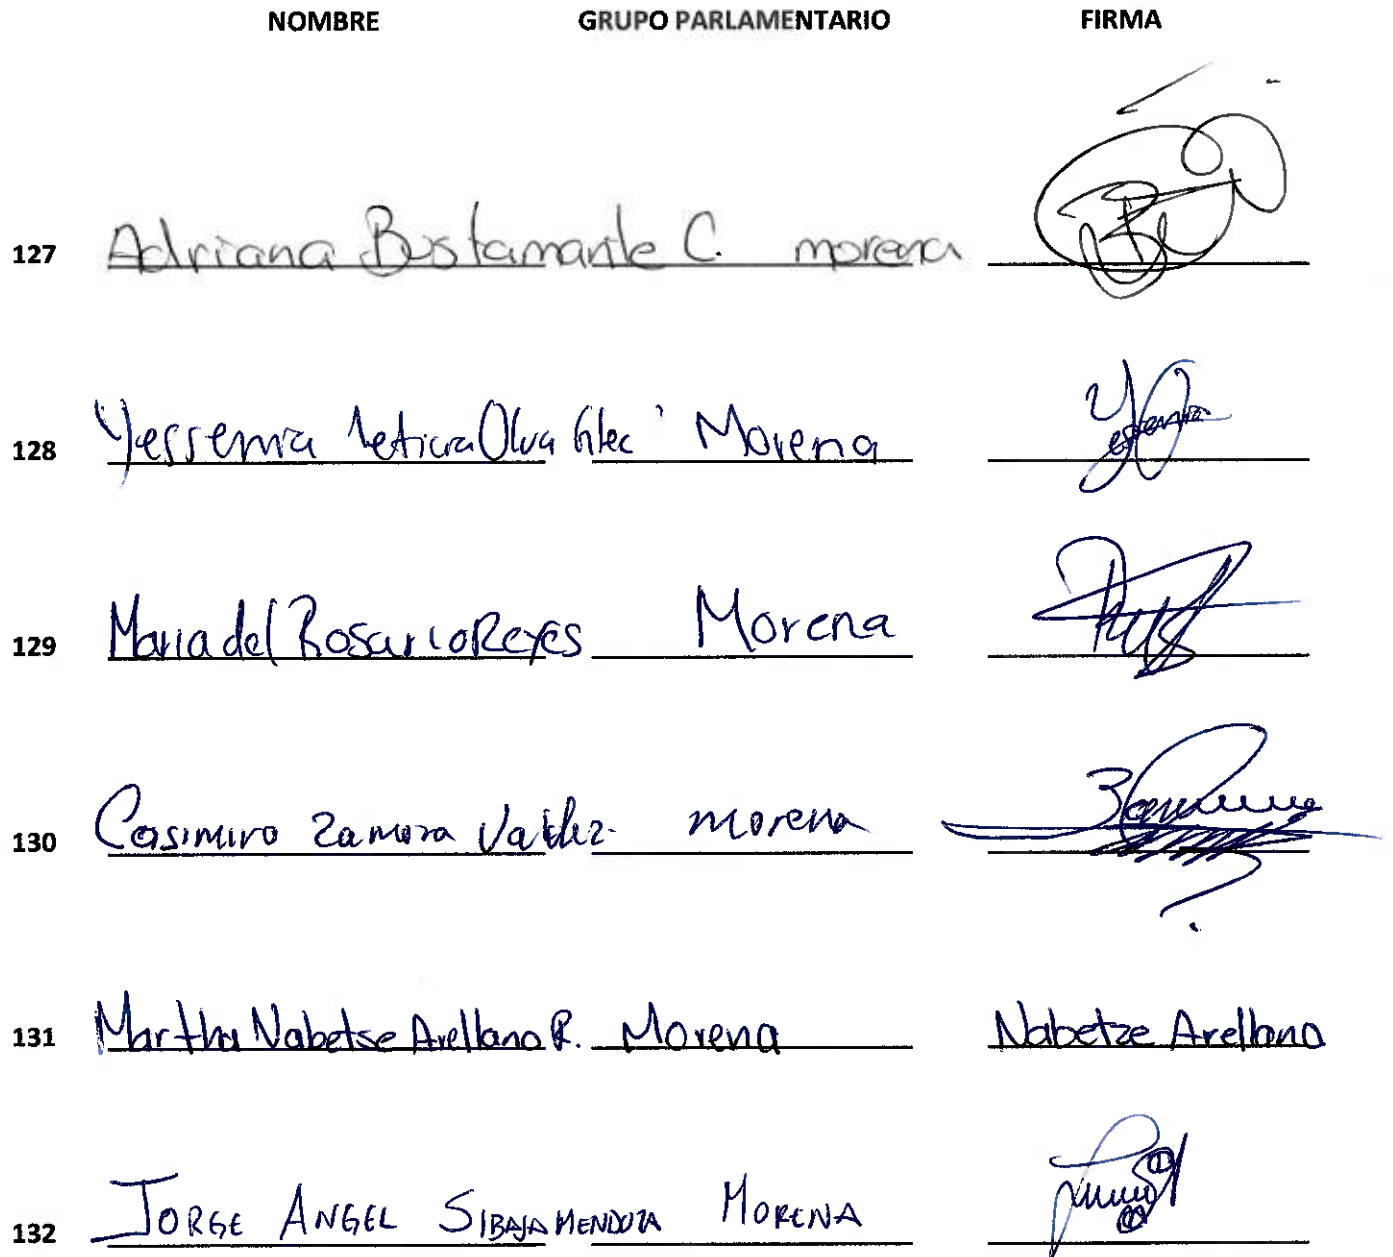 NOMBRE GRUPO PARLAMENTARIO FIRMA
127 Adriana Bustamante C. morena
128 Yessenia Leticia Olua Morena
129 Maria del Rosario Reyes Morena
130 Casimiro Zamora Valdez morena
131 Martha Nabetse Arellano R. Morena Nabetze Arellano
132 JORGE ANGEL SIBAJA MENDOZA MORENA